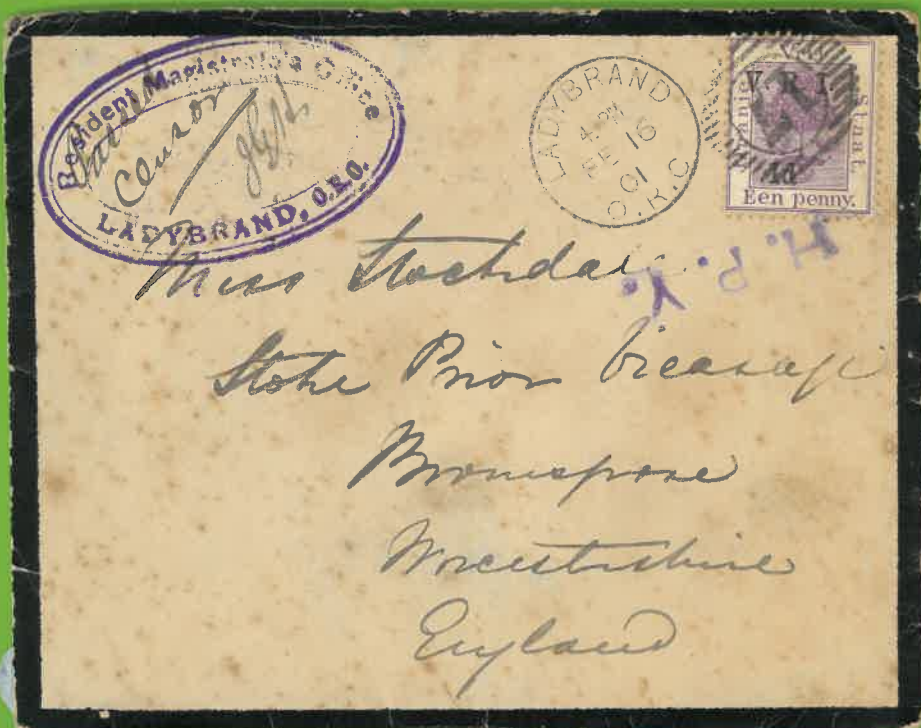 Resident Magistrate's Office
Censor
LADYBRAND, O.R.C.
LADYBRAND
4 PM
FE 16
01
O.R.C
V.R.I.
Oranje Staat.
1d
Een penny.
H.P.Y.
Miss Stockdale
Stoke Prior Vicarage
Bromsgrove
Worcestershire
England